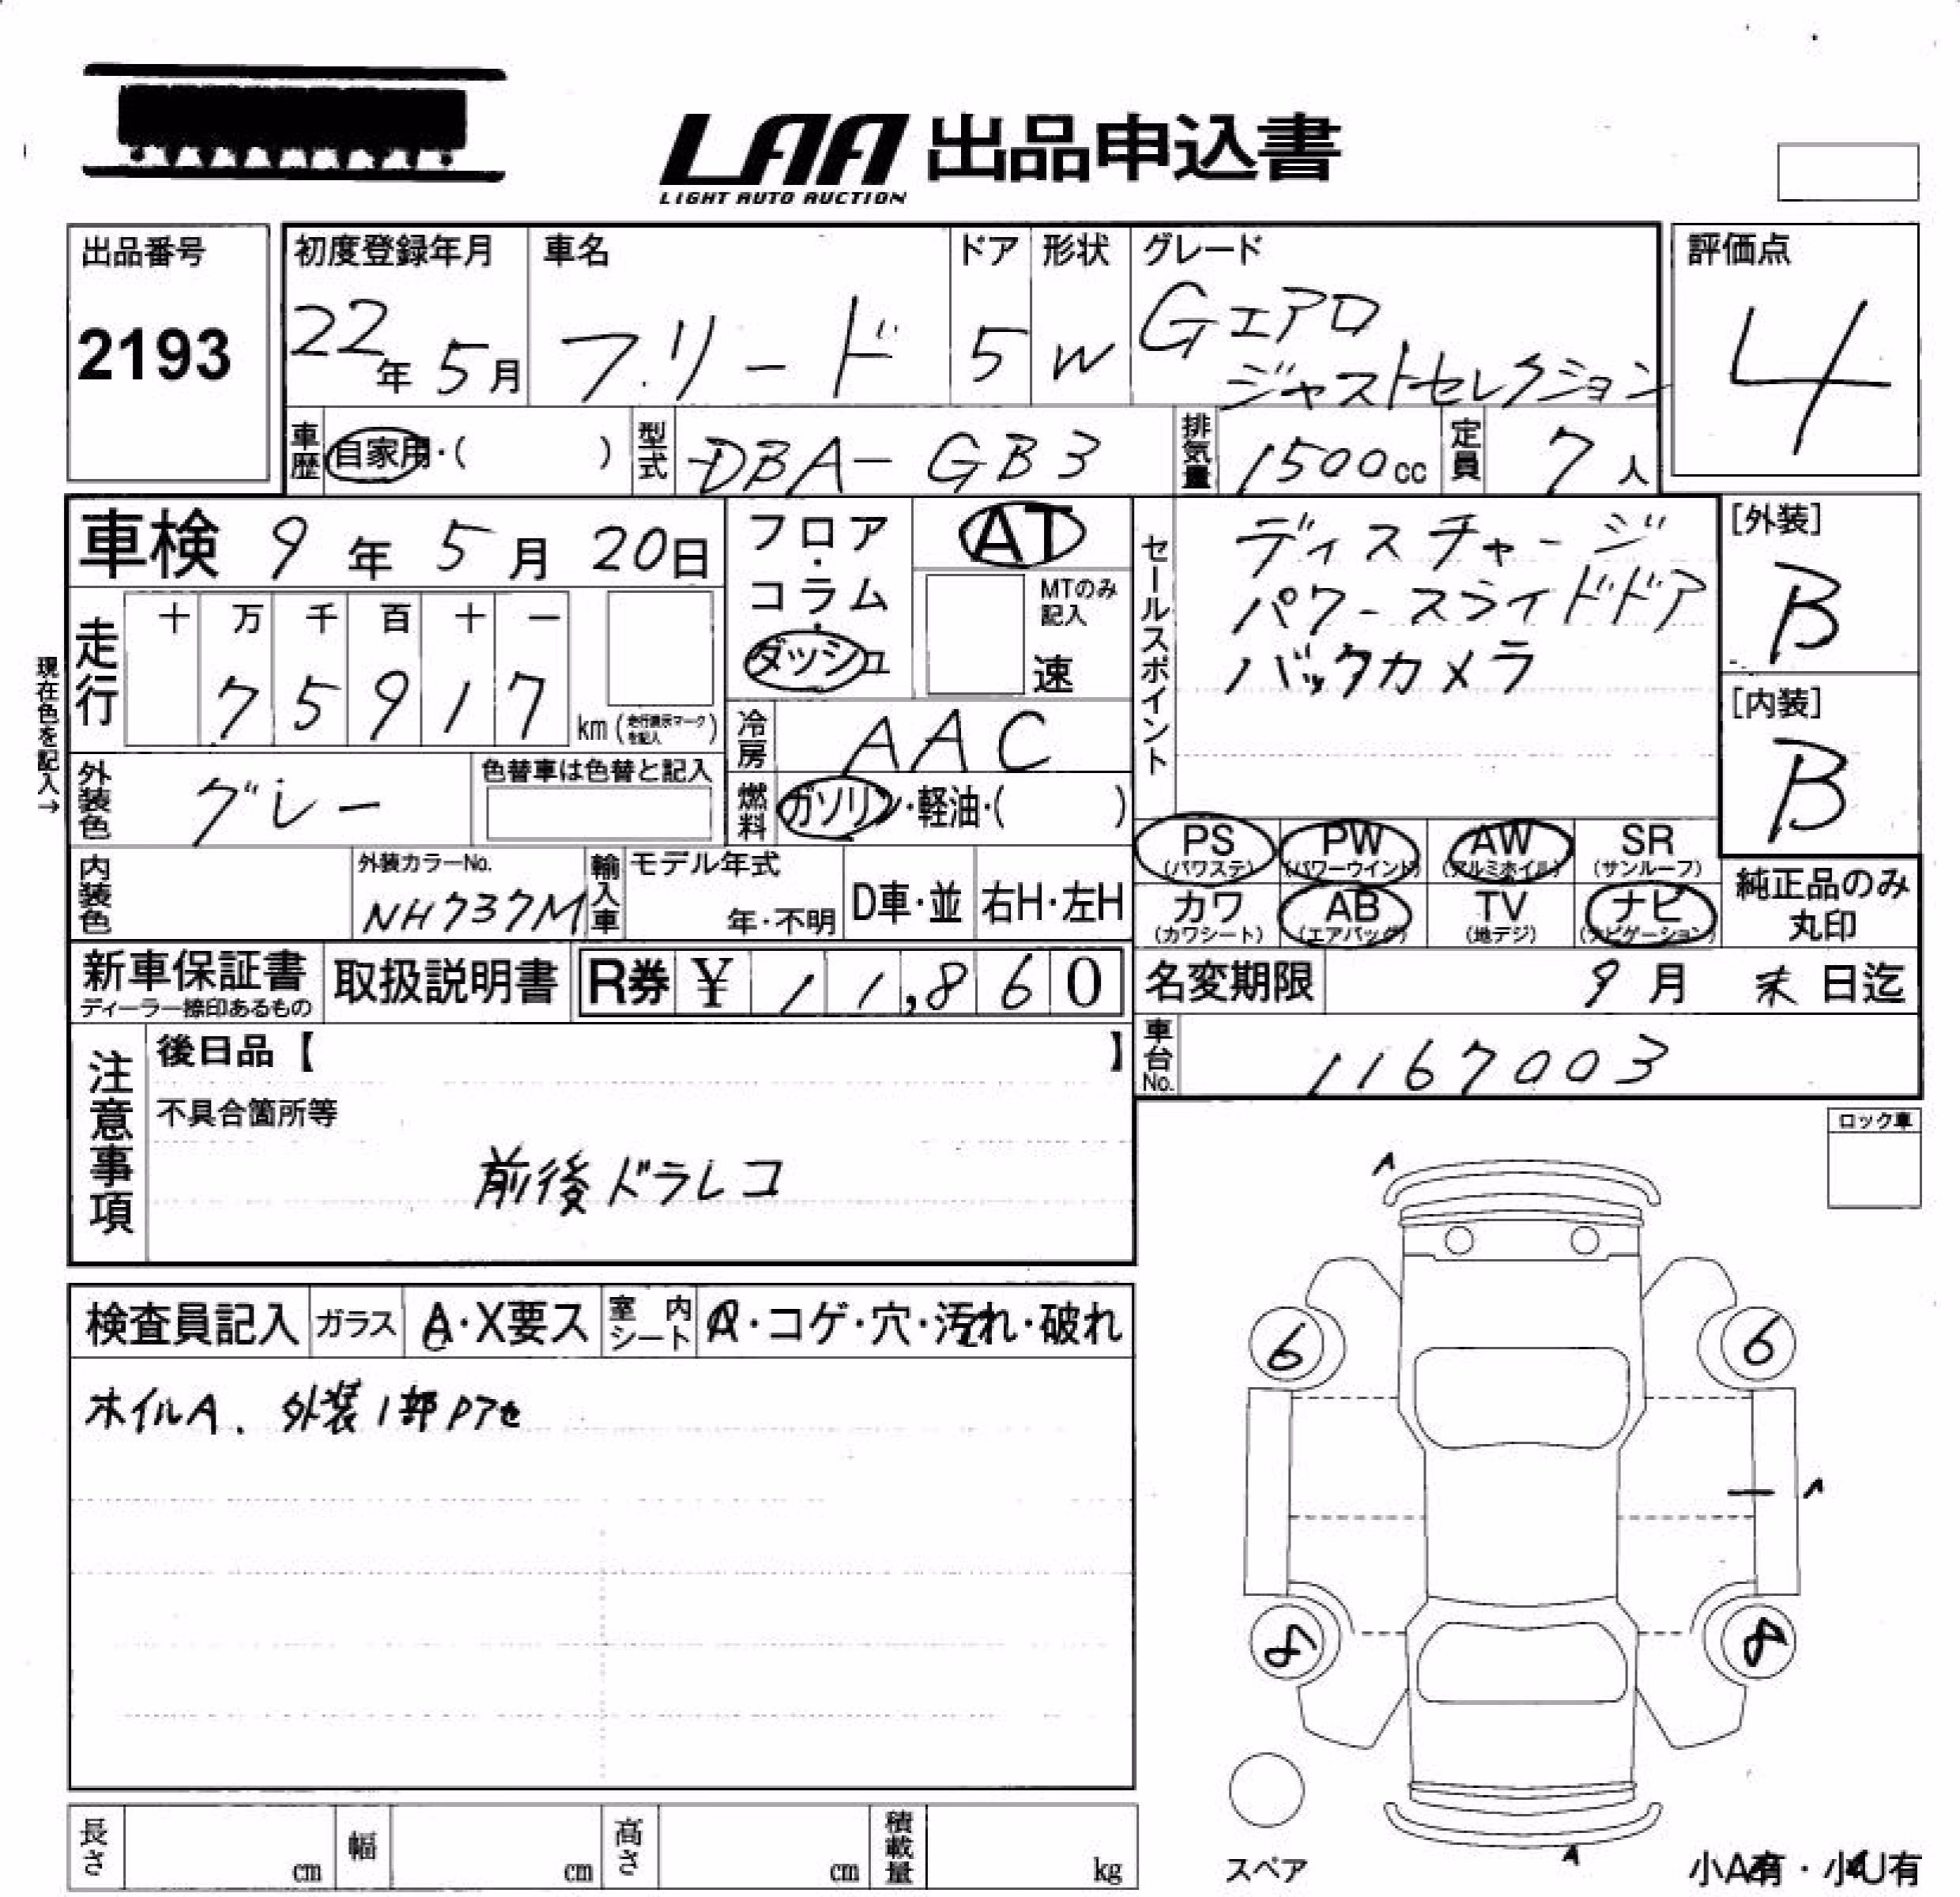 LAA 出品申込書
LIGHT AUTO AUCTION
出品番号
2193
初度登録年月
22年 5月
車名
フリード
ドア
5
形状
W
グレード
Gエアロ
ジャストセレクション
評価点
4
車歴 自家用・( )
型式 DBA-GB3
排気量 1500cc
定員 7人
車検 9年 5月 20日
現在色を記入→
走行
十 万 千 百 十 一
7 5 9 1 7
km (走行表示マークを記入)
フロア・コラム・ダッシュ
AT
MTのみ記入
速
冷房 AAC
燃料 ガソリン・軽油・( )
セールスポイント
ディスチャージ
パワースライドドア
バックカメラ
[外装]
B
[内装]
B
外装色 グレー
色替車は色替と記入
内装色
外装カラーNo.
NH737M
輸入車
モデル年式
年・不明
D車・並
右H・左H
PS (パワステ)
PW (パワーウインド)
AW (アルミホイル)
SR (サンルーフ)
カワ (カワシート)
AB (エアバッグ)
TV (地デジ)
ナビ (ナビゲーション)
純正品のみ
丸印
新車保証書
ディーラー捺印あるもの
取扱説明書
R券 ¥ 11,860
名変期限 9月 末日迄
車台No. 1167003
注意事項
後日品【 】
不具合箇所等
前後ドラレコ
ロック車
検査員記入
ガラス A・X要ス
室内シート A・コゲ・穴・汚れ・破れ
ホイルA. 外装1部Pアセ
A
6 6
A
8 8
スペア
A
小A有・小U有
長さ cm
幅 cm
高さ cm
積載量 kg